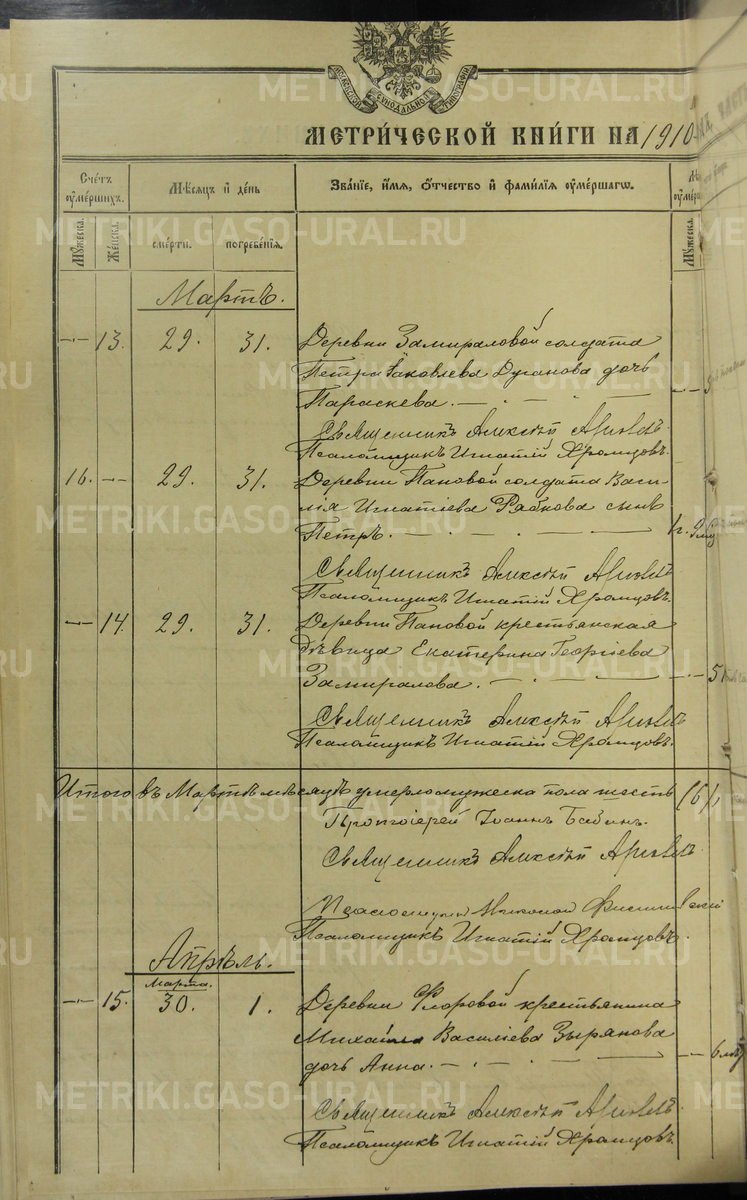 МОСКОВСКОЙ СѴНОДАЛЬНОЙ ТИПОГРАФІИ
МЕТРИ́ЧЕСКОЙ КНИ́ГИ НА 1910
Счетъ ᲂу҆ме́ршихъ.
Мѣсяцъ и де́нь
Зва́нїе, и́мѧ, ѻ҆́тчество и фами́лїѧ ᲂу҆ме́ршагѡ.
Мꙋ́жеска.
Же́нска.
сме́рти.
погребе́нїѧ.
Мꙋ́жеска
Мартъ.
— 13. 29. 31. Деревни Замираловой солдата
Петра Яковлева Дуганова дочь
Параскева. — . — . —
Священникъ Алексѣй
Псаломщикъ Игнатій Хромцовъ.
16. — 29. 31. Деревни Пановой солдата Васи-
лія Игнатіева Рябкова сынъ
Петръ. — . — . — . —
Священникъ Алексѣй
Псаломщикъ Игнатій Хромцовъ.
— 14. 29. 31. Деревни Пановой крестьянская
дѣвица Екатерина Георгіева
Замиралова. — . — . —
Священникъ Алексѣй
Псаломщикъ Игнатій Хромцовъ.
Итого въ Мартѣ мѣсяцѣ умерло мужеска пола шесть (6)
Протоіерей Іоаннъ Бабинъ.
Священникъ Алексѣй
Псаломщикъ Николай
Псаломщикъ Игнатій Хромцовъ.
Апрѣль.
Марта.
— 15. 30. 1. Деревни Флоровой крестьянина
Михаила Василіева Зырянова
дочь Анна. — . — . — . — 6
Священникъ Алексѣй
Псаломщикъ Игнатій Хромцовъ.
METRIKI.GASO-URAL.RU